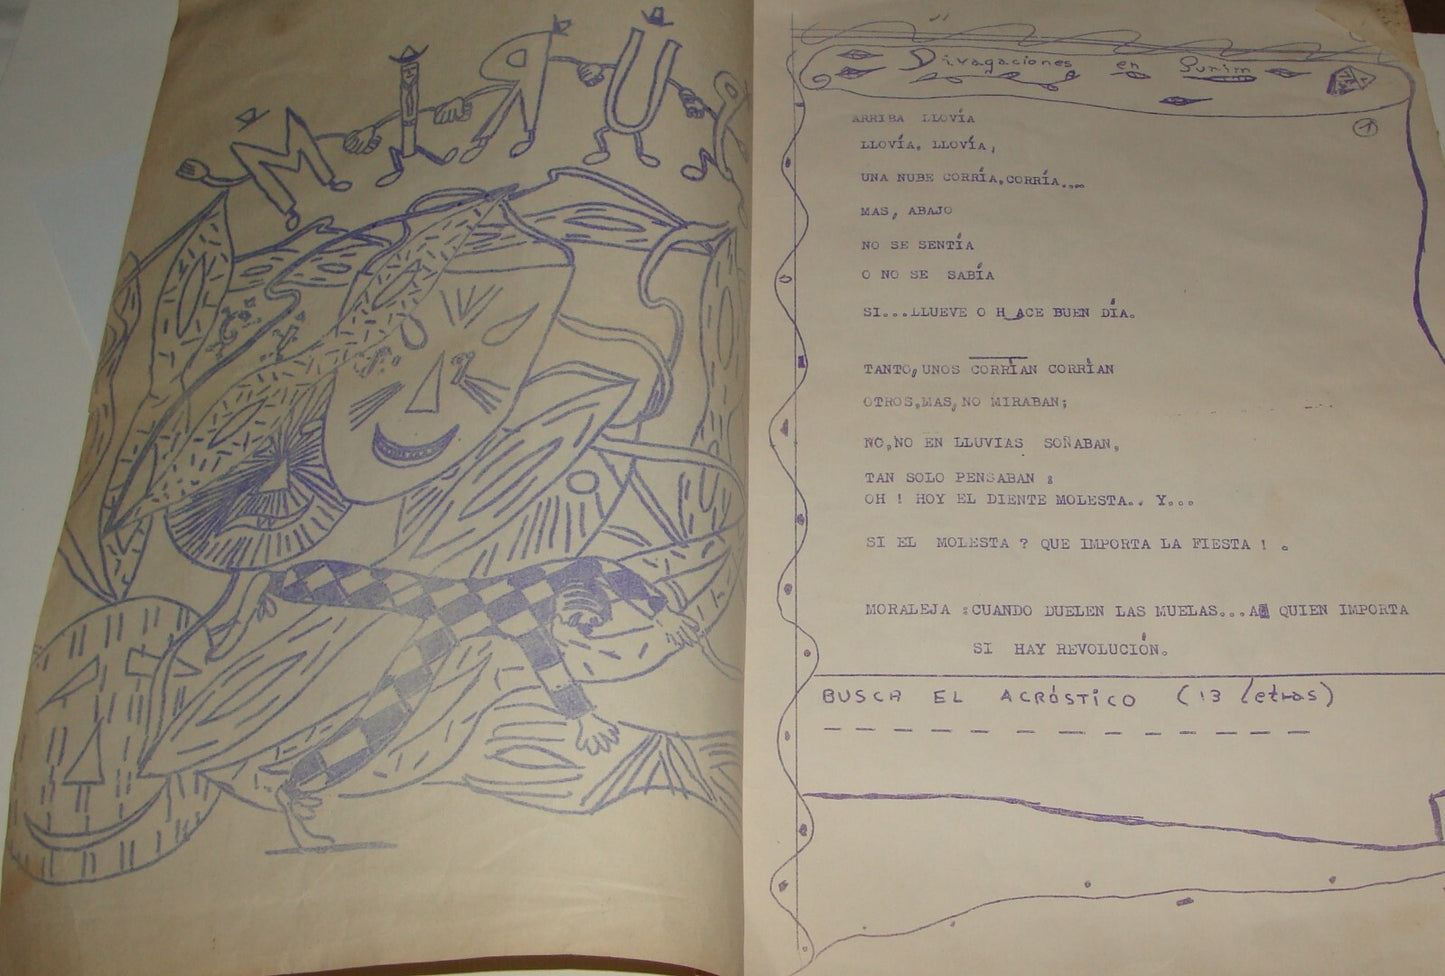 MIRU
Divagaciones en Purim
1
ARRIBA LLOVÍA
LLOVÍA. LLOVÍA,
UNA NUBE CORRÍA,CORRÍA...
MAS, ABAJO
NO SE SENTÍA
O NO SE SABÍA
SI...LLUEVE O H_ACE BUEN DÍA.
TANTO,UNOS CORRÍAN CORRÍAN
OTROS,MAS,NO MIRABAN;
NO,NO EN LLUVIAS SOÑABAN,
TAN SOLO PENSABAN :
OH ! HOY EL DIENTE MOLESTA.. Y...
SI EL MOLESTA ? QUE IMPORTA LA FIESTA ! .
MORALEJA :CUANDO DUELEN LAS MUELAS...A QUIEN IMPORTA
SI HAY REVOLUCIÓN.
BUSCA EL ACRÓSTICO (13 letras)